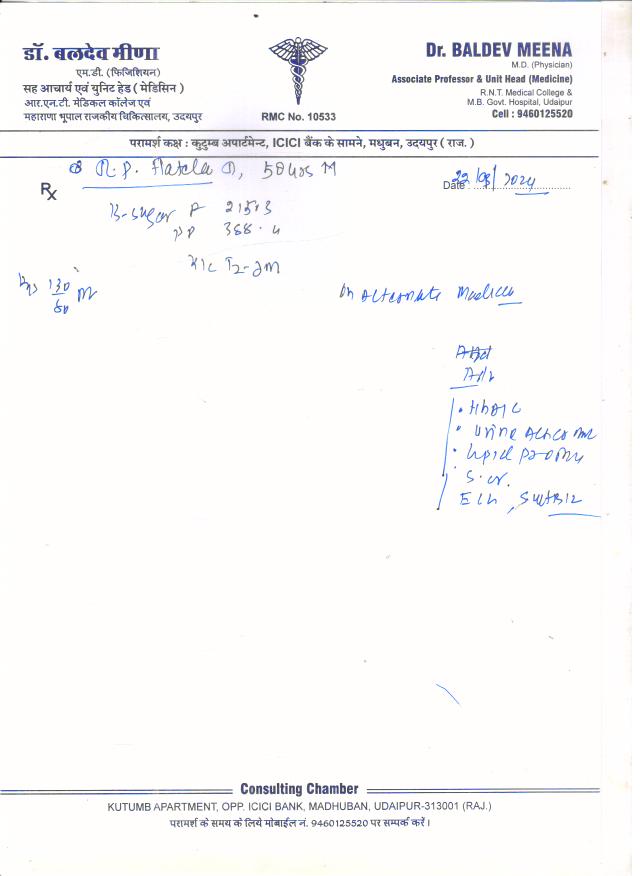 डॉ. बलदेव मीणा
एम.डी. (फिजिशियन)
सह आचार्य एवं यूनिट हेड ( मेडिसिन )
आर.एन.टी. मेडिकल कॉलेज एवं
महाराणा भूपाल राजकीय चिकित्सालय, उदयपुर
RMC No. 10533
Dr. BALDEV MEENA
M.D. (Physician)
Associate Professor & Unit Head (Medicine)
R.N.T. Medical College &
M.B. Govt. Hospital, Udaipur
Cell : 9460125520
परामर्श कक्ष : कुटुम्ब अपार्टमेन्ट, ICICI बैंक के सामने, मधुबन, उदयपुर ( राज. )
N. P.
M
Date 22/08/2024
Rx
B-sugar F
PP 388.4
K/c T2-DM
130/80
on Alternate
Adv
• HbA1C
• Urine
• Lipid
S. cr.
Consulting Chamber
KUTUMB APARTMENT, OPP. ICICI BANK, MADHUBAN, UDAIPUR-313001 (RAJ.)
परामर्श के समय के लिये मोबाईल नं. 9460125520 पर सम्पर्क करें।